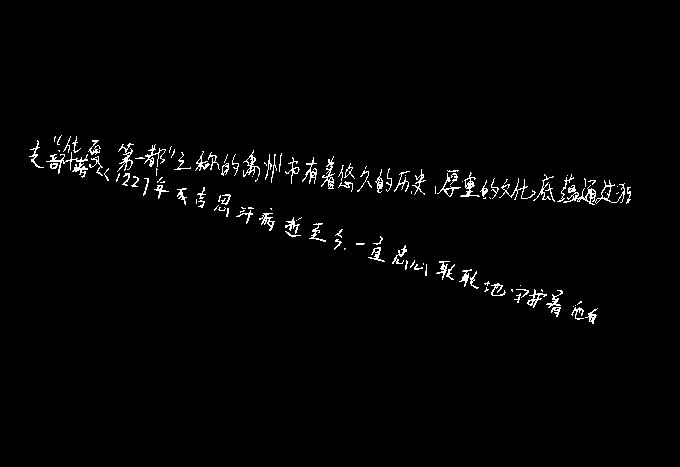 "华夏第一都"之称的禹州市有着悠久的历史,厚重的文化底蕴通过
支部落从1227年成吉思汗病逝至今,一直忠心耿耿地守护着他